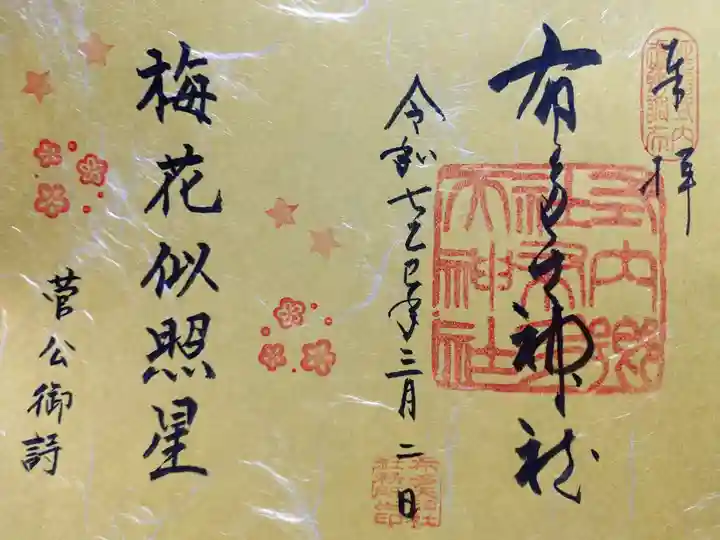 奉拝
布多天神社
式内郷
社布多
天神社
令和七乙巳年三月二日
梅花似照星
菅公御詩